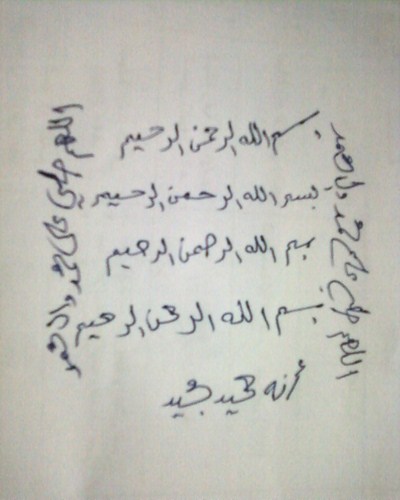 بسم الله الرحمن الرحيم
بسم الله الرحمن الرحيم
بسم الله الرحمن الرحيم
بسم الله الرحمن الرحيم
أنه حميد مجيد
اللهم صلي على محمد وال محمد
اللهم صلي على محمد وال محمد